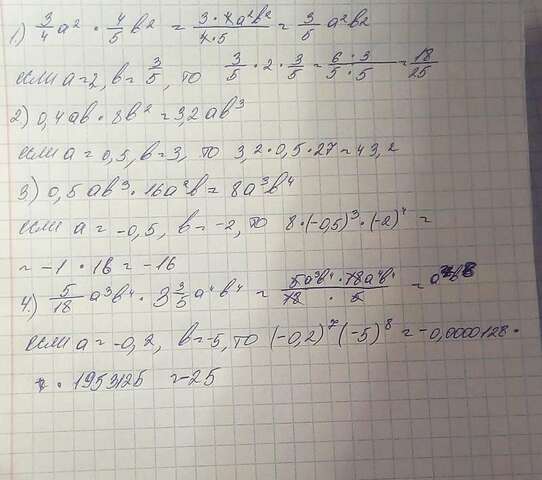 1) 3/4 a² · 4/5 b² = (3·4a²b²)/(4·5) = 3/5 a²b²
если a=2, b=3/5, то 3/5 · 2 · 3/5 = (6·3)/(5·5) = 18/25
2) 0,4ab · 8b² = 3,2ab³
если a = 0,5, b=3, то 3,2·0,5·27=43,2
3) 0,5ab³·16a²b = 8a³b⁴
если a = -0,5, b = -2, то 8·(-0,5)³·(-2)⁴ =
= -1 · 16 = -16
4.) 5/18 a³b⁴ · 3 3/5 a⁴b⁴ = (5a³b⁴·18a⁴b⁴)/(18 · 5) = a⁷b⁸
если a = -0,2, b=-5, то (-0,2)⁷(-5)⁸ = -0,0000128·
· 1953125 = -25